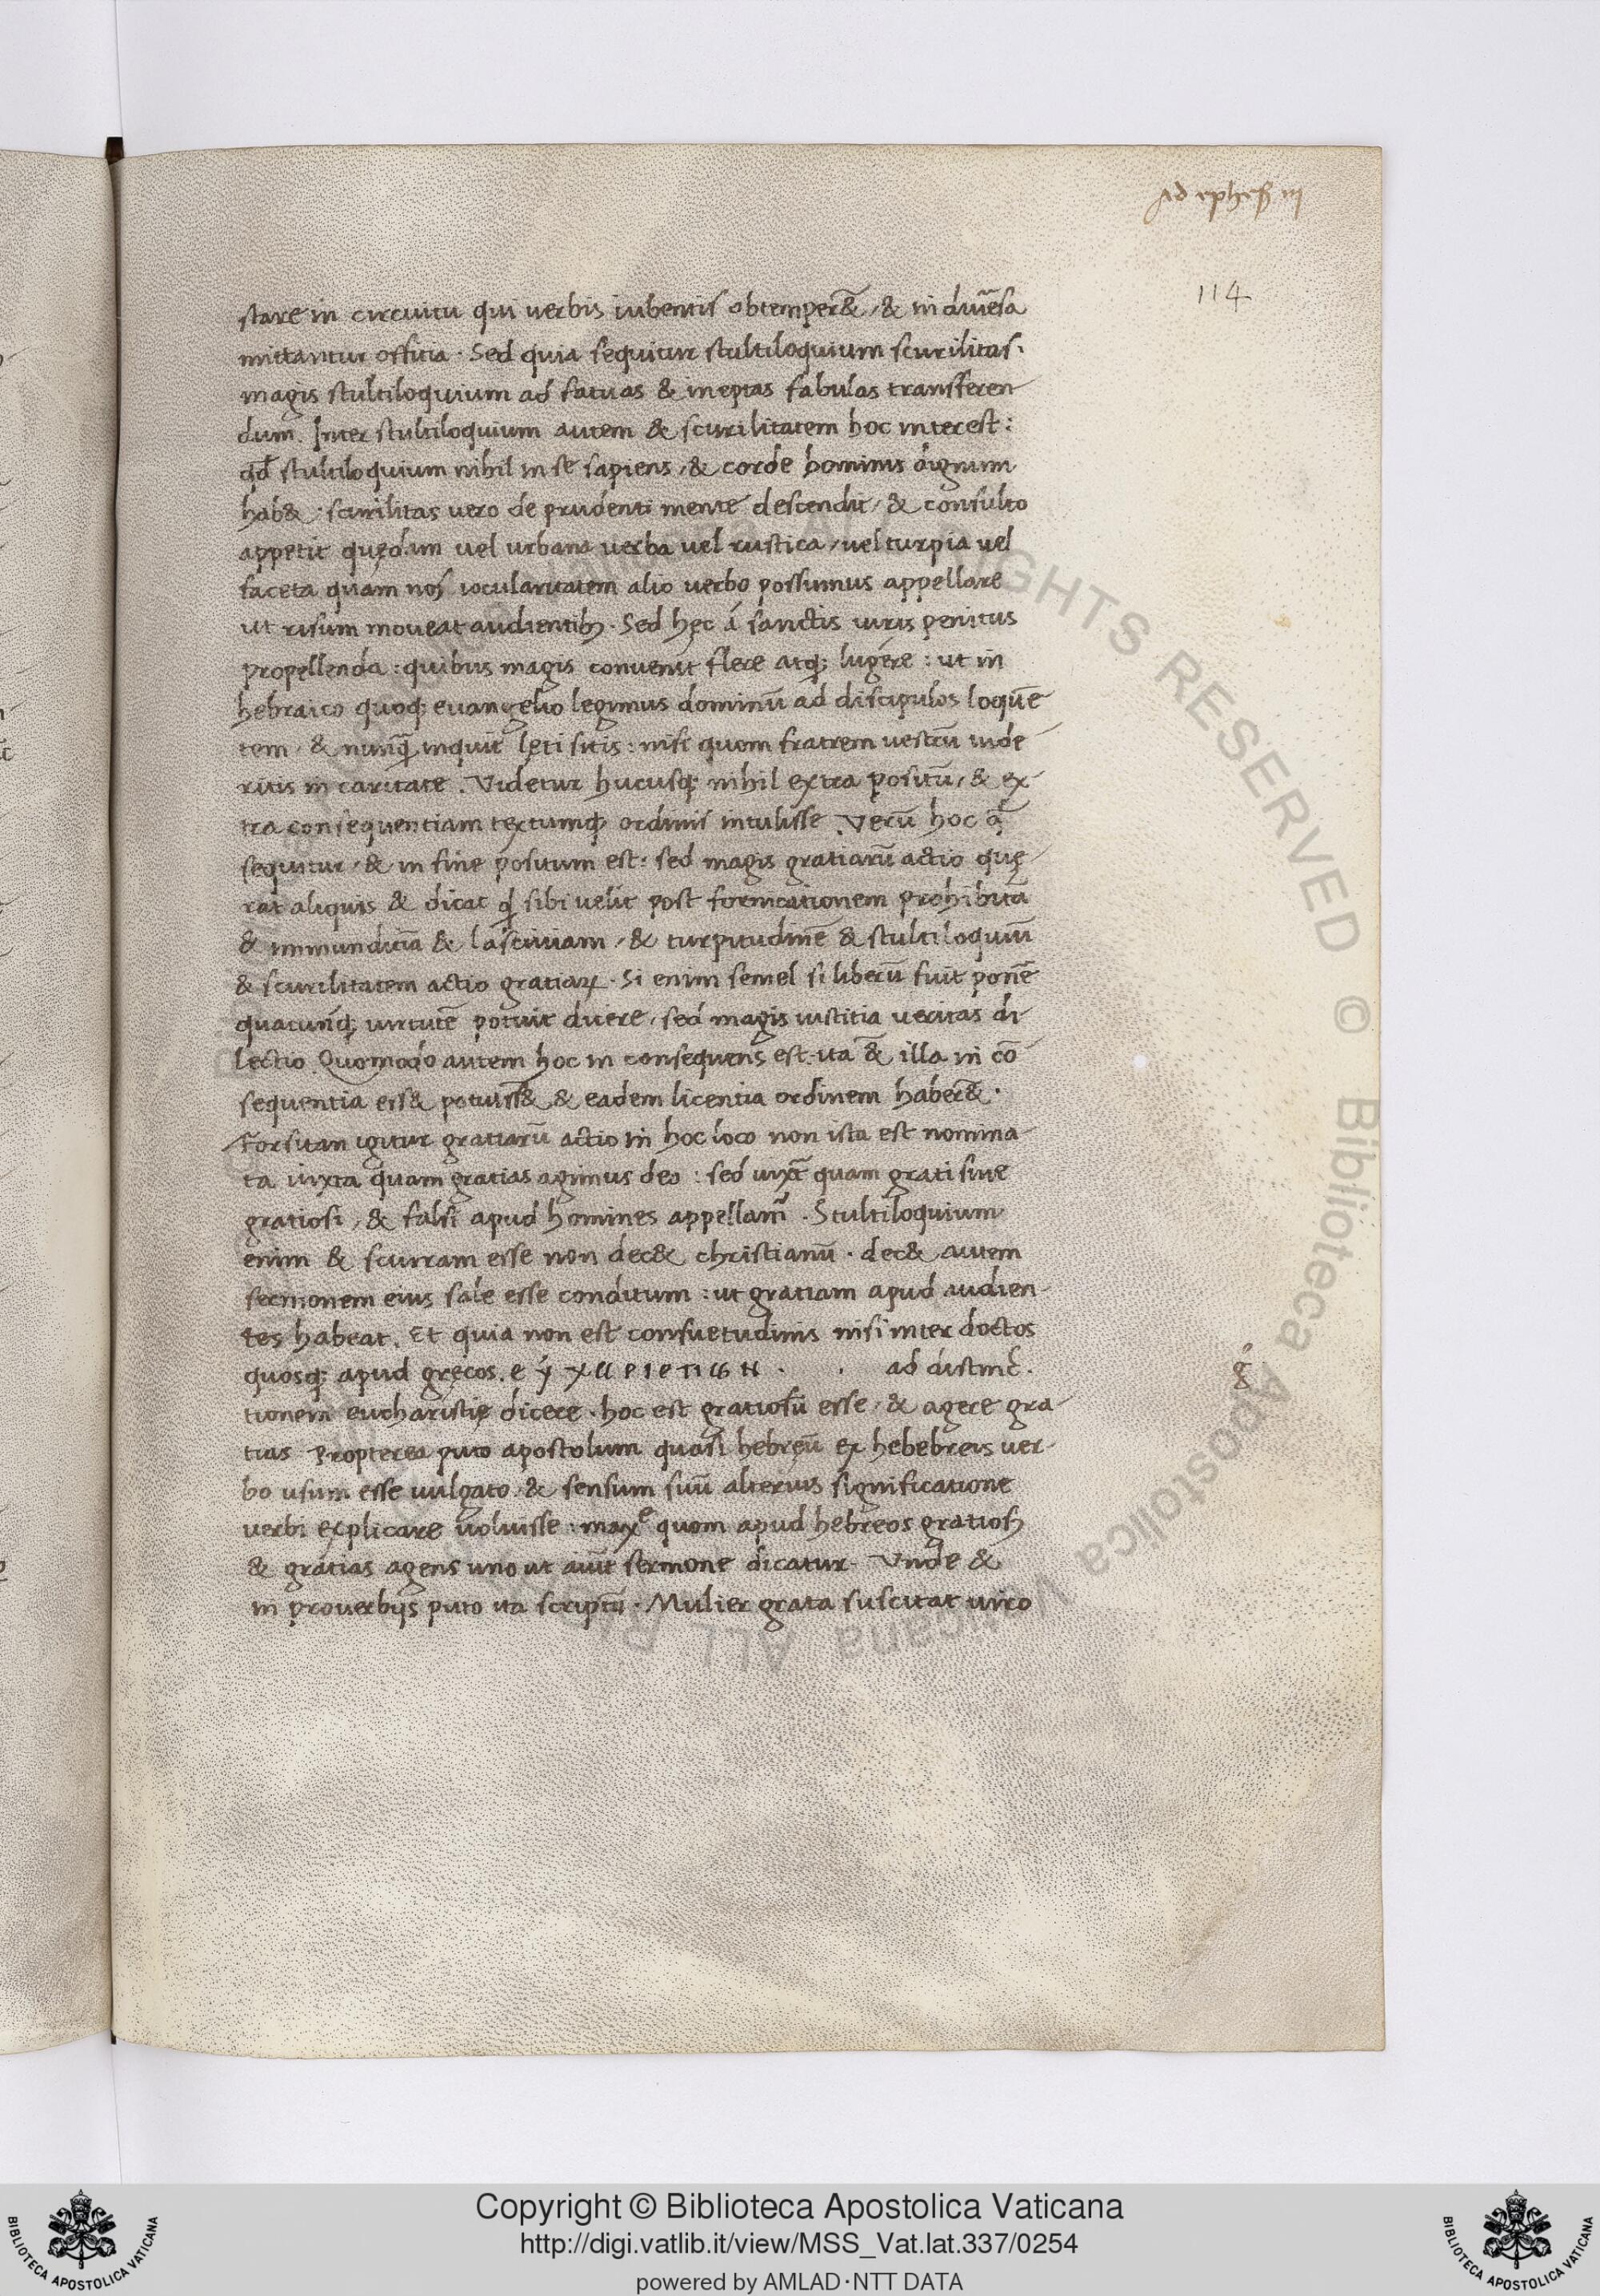 Ad ephes̄ iij
114
stare in circuitu qui verbis iubentis obtemper&̄, & in diu̅esa
mittantur offitia. Sed quia sequitur stultiloquium scurilitas.
magis stultiloquium ad fatuas & ineptas fabulas transferen
dum. Inter stultiloquium autem & scurilitatem hoc interest:
qd̄ stultiloquium nihil in se sapiens, & corde hominis dignum
hab&: scurilitas vero de prudenti mente descendit, & consulto
appetit quędam vel urbana verba vel rustica, vel turpia vel
faceta quam nos iocularitatem alio verbo possumus appellare
ut risum moveat audientibȝ. Sed hęc á sanctis viris penitus
propellenda: quibus magis convenit flere atqȝ lugére: ut in
hebraico quoqȝ euangelio legimus dominū ad discipulos loquē
tem, & nunq̄ inquit lęti sitis: nisi quom fratrem vestrū vide
ritis in caritate. Videtur hucusqȝ nihil extra positū, & ex
tra consequentiam textumqȝ ordinis intulisse. Verū hoc q̄
sequitur, & in fine positum est: sed magis gratiarū actio quę
rat aliquis & dicat qd̄ sibi velit post fornicationem prohibitā
& immunditiā & lasciuiam, & turpitudinē & stultiloquiū
& scurilitatem actio gratiaꝝ. Si enim semel si liberū fuit ponē
quacunqȝ virtutē potuit dicere, sed magis iustitia veritas di
lectio. Quomodo autem hoc in consequens est ita & illa in cō
sequentia ess& potuiss& & eadem licentia ordinem haber&.
Forsitan igitur gratiarū actio in hoc loco non ista est nomina
ta iuxta quam gratias agimus deo: sed iuxt̄ quam grati sive
gratiosi, & falsi apud homines appellam̄. Stultiloquium
enim & scurram esse non dec& christianū. dec& autem
sermonem eius sale esse conditum: ut gratiam apud audien
tes habeat. Et quia non est consuetudinis nisi inter doctos
quosqȝ apud gręcos. e ý χ α ρ ι ε π ω N . . ad distinc̄.
g̊
tionem eucharistię dicere. hoc est gratiosū esse, & agere gra
tias Propterea puto apostolum quasi hebręū ex hebebreis ver
bo usum esse vulgato, & sensum suū alterius significatione
verbi explicare voluisse: maxᵉ quom apud hebreos gratiosȝ
& gratias agens uno ut aiūt sermone dicatur. Vnde &
in proverbijs puto ita scriptū. Mulier grata suscitat viro
ALL RIGHTS RESERVED © Biblioteca Apostolica Vaticana
Copyright © Biblioteca Apostolica Vaticana
http://digi.vatlib.it/view/MSS_Vat.lat.337/0254
powered by AMLAD·NTT DATA
BIBLIOTECA APOSTOLICA VATICANA
BIBLIOTECA APOSTOLICA VATICANA